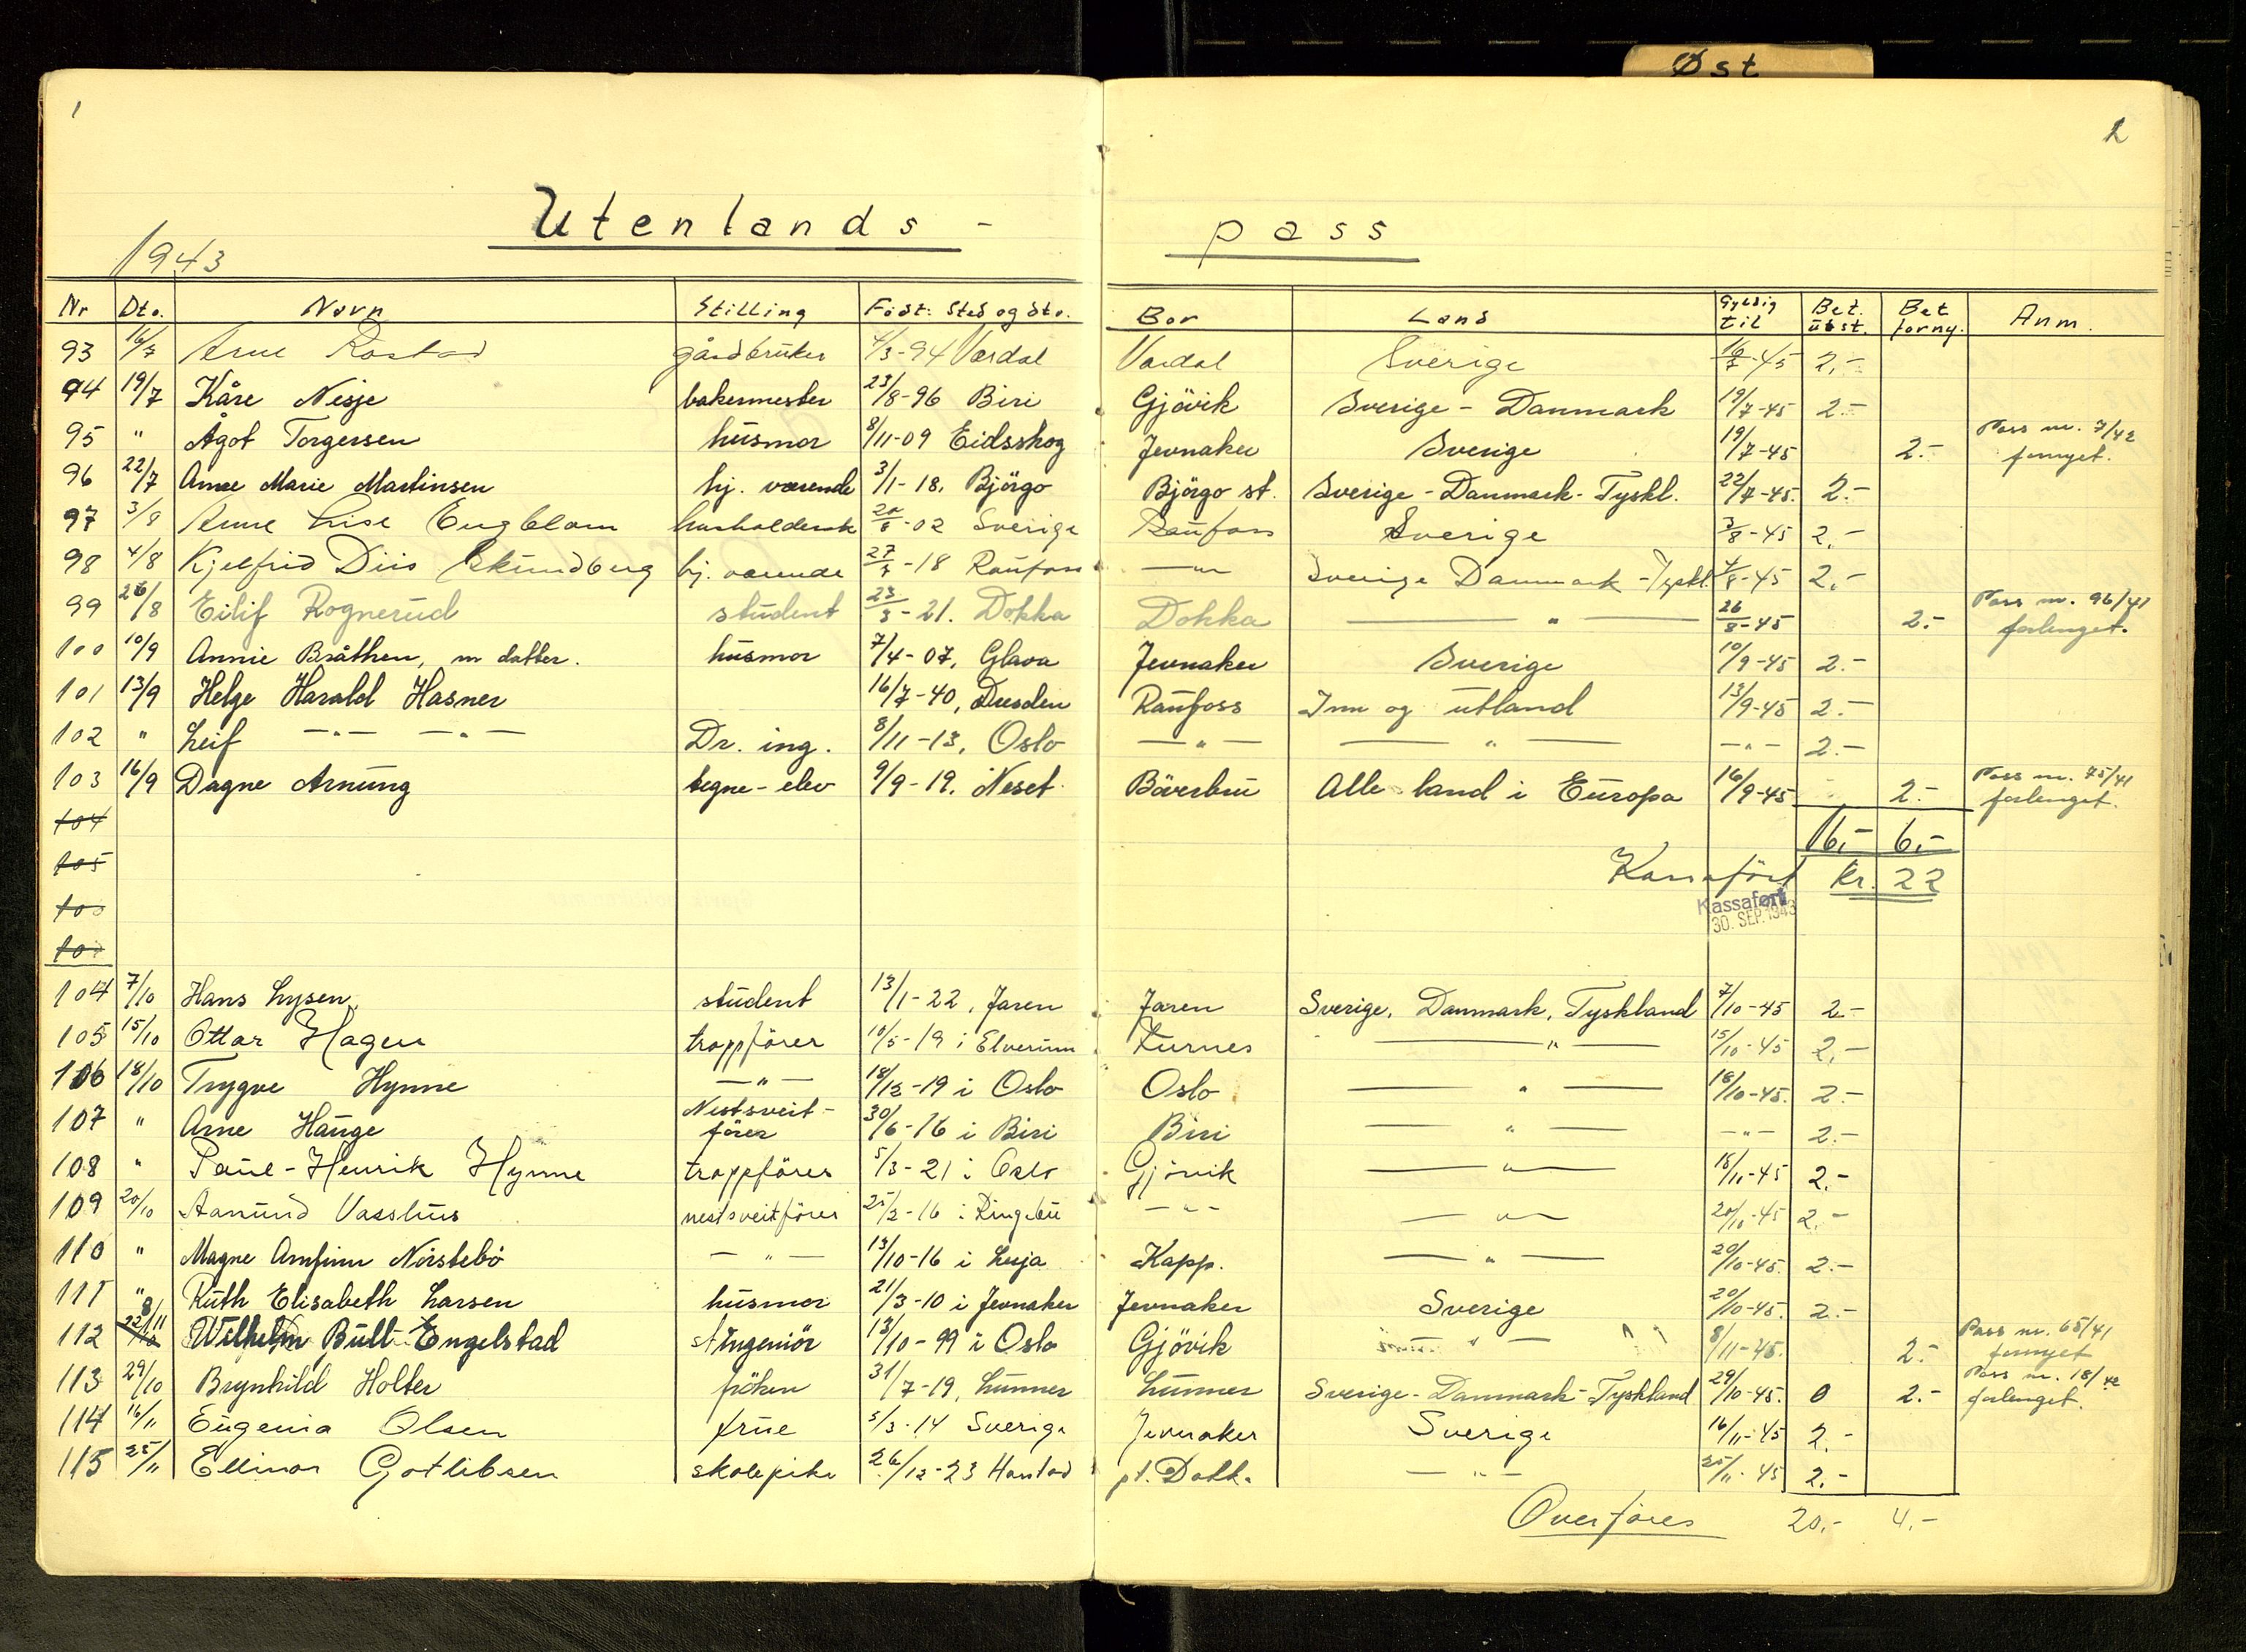 Øst
1
2
Utenlands - pass
1943
Nr Dto. Navn Stilling Født: Sted og dto. Bor Land Gyldig til Bet. utst. Bet forny. Anm.
93 16/7 Arne Rostad gårdbruker 4/3-94 Vardal Vardal Sverige 16/7-45 2,-
94 19/7 Kåre Nesje bakermester 23/8-96 Biri Gjövik Sverige - Danmark 19/7-45 2.-
95 " Ågot Torgersen husmor 8/11-09 Eidsskog Jevnaker Sverige 19/7-45 2.- Pass nr. 7/42 fornyet.
96 22/7 Anne Marie Martinsen hj. værende 3/1-18, Björgo Björgo st. Sverige - Danmark - Tyskl. 22/7-45. 2.-
97 3/8 Anne Lise Engblom husholdersk 20/8-02 Sverige Raufoss Sverige 3/8-45 2,-
98 4/8 Kjelfrid Diis Skundberg hj. værende 27/7-18 Raufoss —"— Sverige Danmark - Tyskl. 4/8-45 2,-
99 26/8 Eilif Rognerud student 23/3-21. Dokka Dokka — " — 26/8-45 2.- Pass nr. 96/41 forlenget.
100 10/9 Annie Bråthen, m datter. husmor 7/4-07, Glava Jevnaker Sverige 10/9-45 2.-
101 13/9 Helge Harald Hasner 16/7-40, Dresden Raufoss Inn og utland 13/9-45 2.-
102 " Leif —"— —"— Dr. ing. 8/11-13, Oslo —"— — " — —"— 2.-
103 16/9 Dagne Arnung tegne-elev 9/9-19. Neset Böverbru Alle land i Europa 16/9-45 2.- Pass nr. 75/41 forlenget.
104 16,- 6,-
105 Kassaført kr. 22
Kassaført
30. SEP. 1943
104 7/10 Hans Lysen student 13/1-22, Jaren Jaren Sverige, Danmark, Tyskland 7/10-45 2.-
105 15/10 Ottar Hagen troppförer 10/5-19 i Elverum Furnes — " — 15/10-45 2,-
106 18/10 Trygve Hynne —"— 18/12-19 i Oslo Oslo — " — 18/10-45. 2.-
107 " Arne Hauge Nestsveit-förer 30/6-16 i Biri Biri — " — —"— 2.-
108 " Paul-Henrik Hynne troppförer 5/3-21 i Oslo Gjövik — " — 18/11-45 2.-
109 20/10 Aamund Vasshus nestsveitförer 25/2-16 i Ringebu —"— — " — 20/10-45 2.-
110 " Magne Arnfinn Nörstebö — " — 13/10-16 i Lesja Kapp. — " — 20/10-45. 2.-
111 " Ruth Elisabeth Larsen husmor 21/3-10 i Jevnaker Jevnaker Sverige 20/10-45. 2.-
112 8/11 Wilhelm Bull Engelstad ingeniör 13/10-99 i Oslo Gjövik " — 8/11-45. 2.- Pass nr. 65/41 fornyet
113 29/10 Brynhild Holter fröken 31/7-19, Lunner Lunner Sverige - Danmark - Tyskland 29/10-45. 0 2.- Pass nr. 18/42 forlenget.
114 16/11 Eugenia Olsen frue 5/3-14 Sverige Jevnaker Sverige 16/11-45 2.-
115 25/11 Ellinor Gotlibsen skolepike 26/12-23 Harstad pt. Dokk. — " — 25/11-45 2.-
Overföres 20,- 4.-